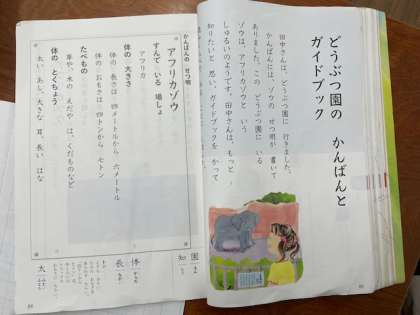 どうぶつ園の かんばんと
ガイドブック
田中さんは、どうぶつ園に 行きました。
かんばんには、ゾウの せつ明が 書いて
ありました。この どうぶつ園に いる
ゾウは、アフリカゾウと いう
しゅるいのようです。田中さんは、もっと
知りたいと 思い、ガイドブックを かって
かんばんの せつ明
アフリカゾウ
すんで いる 場しょ
アフリカ
体の 大きさ
体の 長さは 四メートルから 六メートル
体の おもさは 四トンから 七トン
たべもの
草や 木の えだや は、くだものなど
体の とくちょう
太い あし、大きな 耳、長い はな
園
知
体
長
太